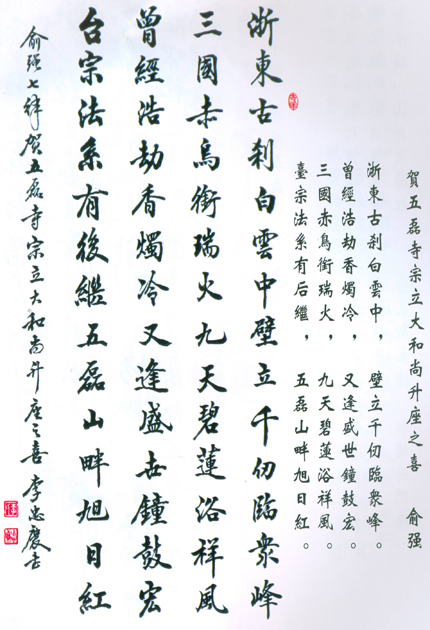 賀五磊寺宗立大和尚升座之喜　俞强
浙東古刹白雲中，壁立千仞臨衆峰。
曾經浩劫香燭冷，又逢盛世鐘鼓宏。
三國赤鳥銜瑞火，九天碧蓮浴祥風。
臺宗法系有后繼，五磊山畔旭日紅。
浙東古刹白雲中壁立千仞臨衆峰
三國赤烏銜瑞火九天碧蓮浴祥風
曾經浩劫香燭冷又逢盛世鐘鼓宏
台宗法系有後繼五磊山畔旭日紅
俞强七律賀五磊寺宗立大和尚升座之喜 李忠慶书